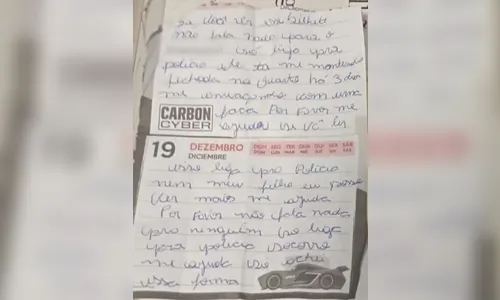 se você ler esse bilhete
não fala nada para o
só liga pra
polícia ele ta me mantendo
fechada no quarto há 3 dias
me ameaçando com uma
faca Por Favor me
ajuda se vc ler
CARBON
CYBER
19 DEZEMBRO
DICIEMBRE
DOM SEG TER QUA QUI SEX SÁB
isso liga pro Polícia
nem meu filho eu posso
ver mais me ajuda
Por Favor não fala nada
pra ninguém só liga
para polícia socorro
me ajuda
essa forma